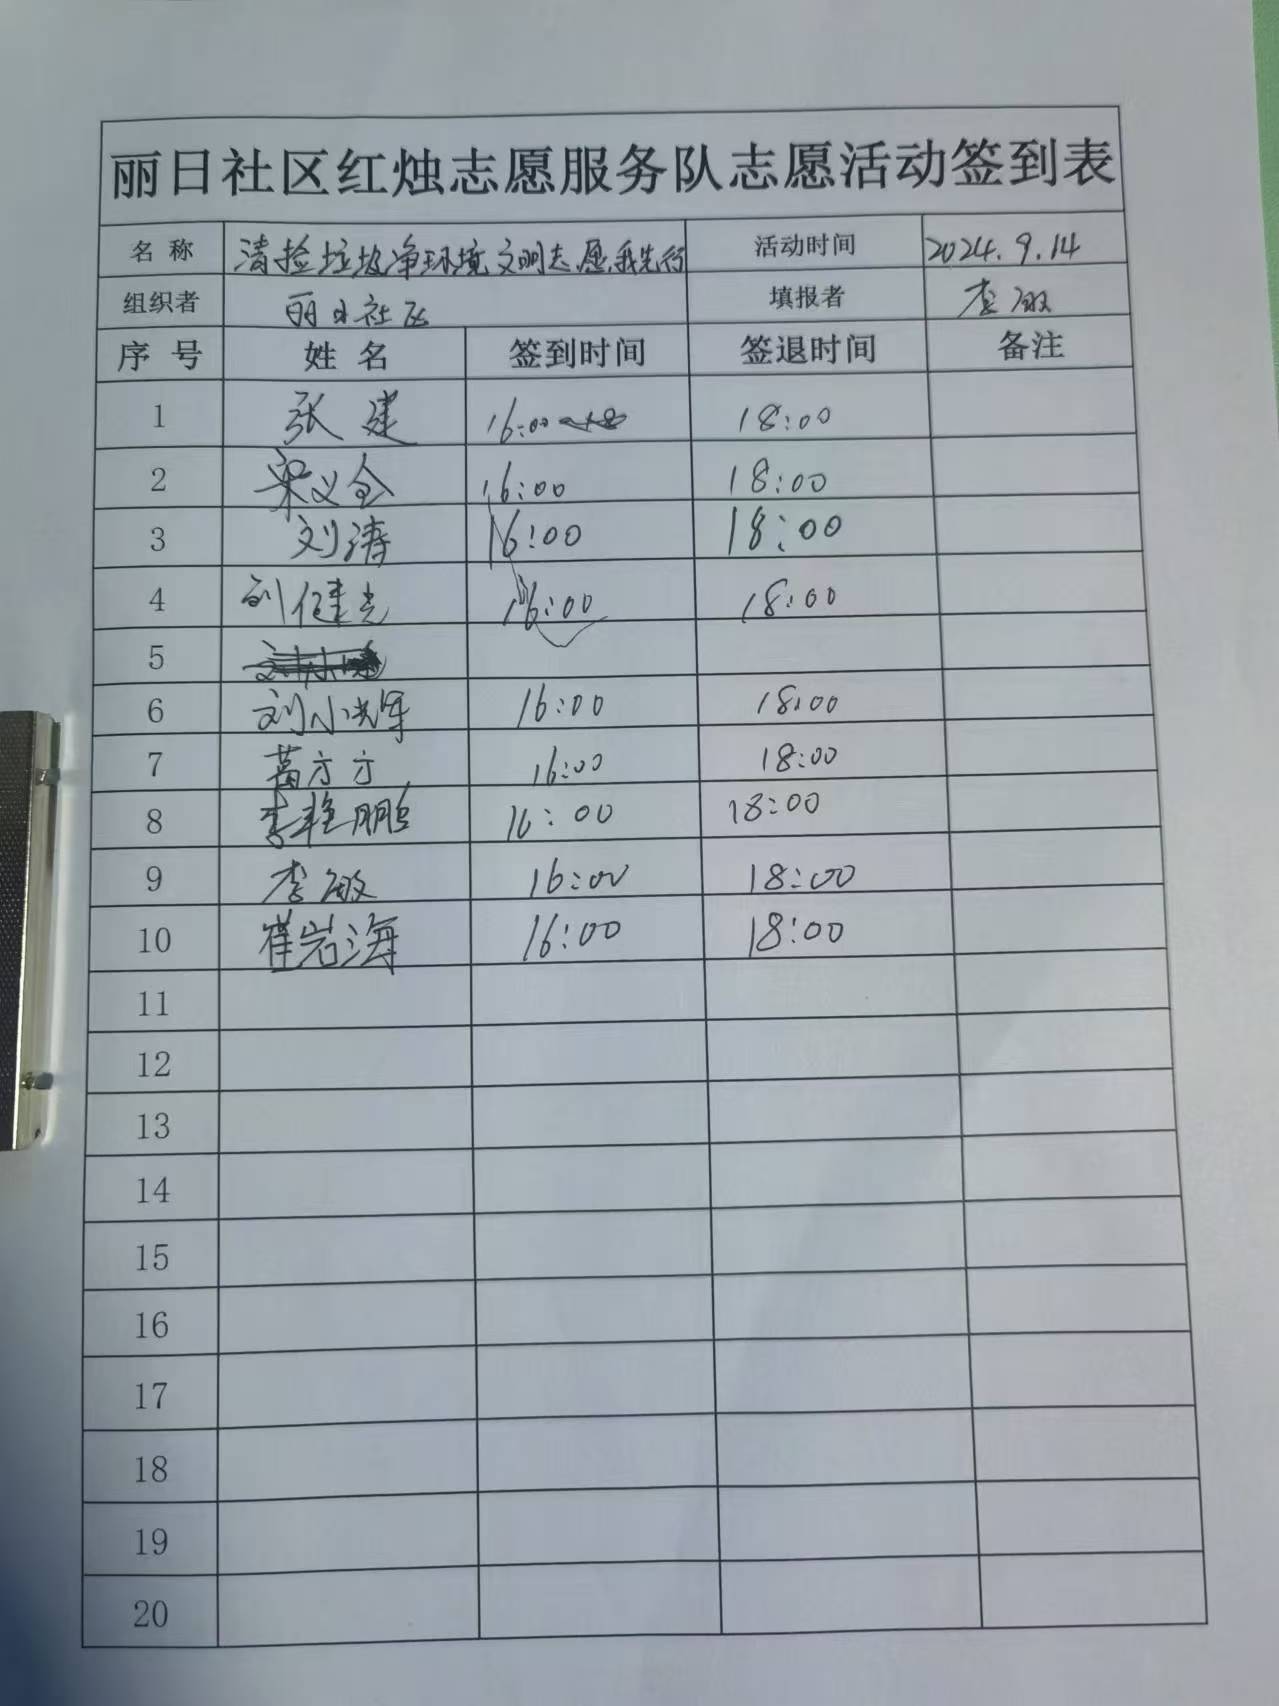 丽日社区红烛志愿服务队志愿活动签到表
名 称 清捡垃圾净环境,文明志愿我先行 活动时间 2024.9.14
组织者 丽日社区 填报者 李敏
序 号 姓 名 签到时间 签退时间 备注
1 张建 16:00 18:00
2 梁义全 16:00 18:00
3 刘涛 16:00 18:00
4 刘健光 16:00 18:00
5
6 刘小军 16:00 18:00
7 葛方方 16:00 18:00
8 李艳鹏 16:00 18:00
9 李敏 16:00 18:00
10 崔岩海 16:00 18:00
11
12
13
14
15
16
17
18
19
20